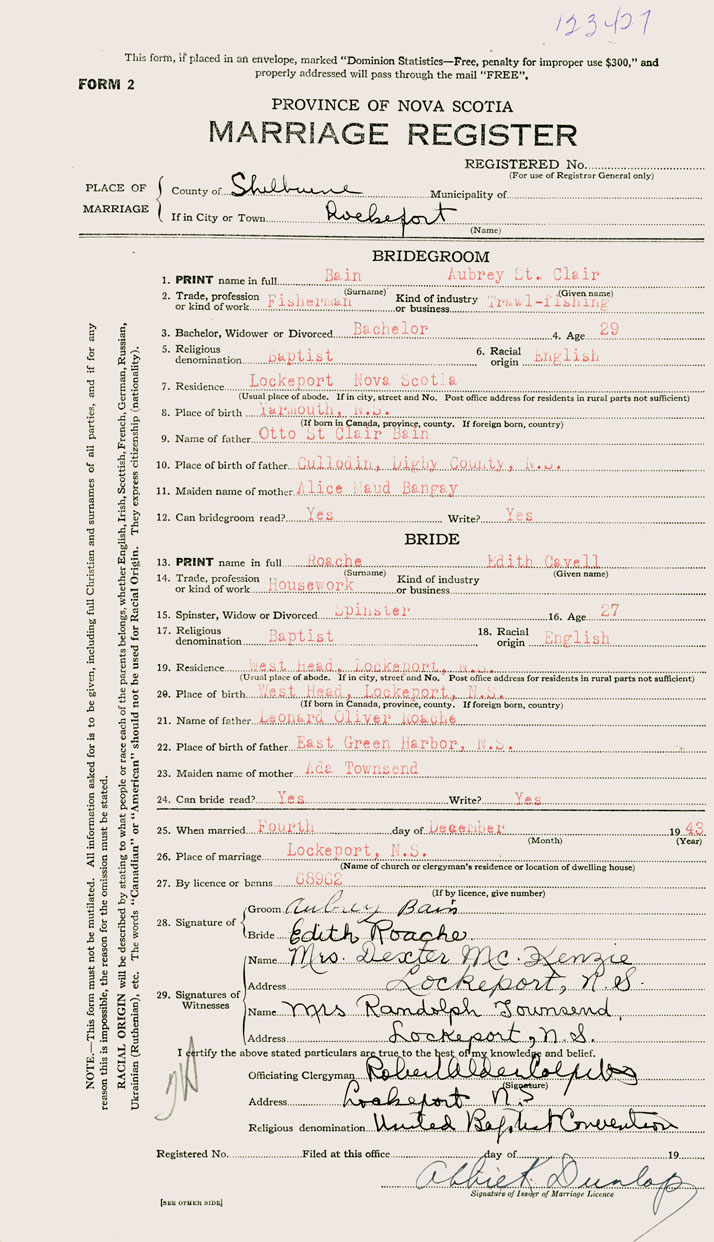 123427
This form, if placed in an envelope, marked "Dominion Statistics—Free, penalty for improper use $300," and
properly addressed will pass through the mail "FREE".
FORM 2
PROVINCE OF NOVA SCOTIA
MARRIAGE REGISTER
REGISTERED No.
(For use of Registrar General only)
PLACE OF MARRIAGE
County of Shelburne Municipality of
If in City or Town Lockeport
(Name)
BRIDEGROOM
1. PRINT name in full Bain Aubrey St. Clair
(Surname) (Given name)
2. Trade, profession or kind of work Fisherman Kind of industry or business Trawl-fishing
3. Bachelor, Widower or Divorced Bachelor 4. Age 29
5. Religious denomination Baptist 6. Racial origin English
7. Residence Lockeport Nova Scotia
(Usual place of abode. If in city, street and No. Post office address for residents in rural parts not sufficient)
8. Place of birth Yarmouth, N.S.
(If born in Canada, province, county. If foreign born, country)
9. Name of father Otto St Clair Bain
10. Place of birth of father Cullodin, Digby County, N.S.
11. Maiden name of mother Alice Maud Bangay
12. Can bridegroom read? Yes Write? Yes
BRIDE
13. PRINT name in full Roache Edith Cavell
(Surname) (Given name)
14. Trade, profession or kind of work Housework Kind of industry or business
15. Spinster, Widow or Divorced Spinster 16. Age 27
17. Religious denomination Baptist 18. Racial origin English
19. Residence West Head, Lockeport, N.S.
(Usual place of abode. If in city, street and No. Post office address for residents in rural parts not sufficient)
20. Place of birth West Head, Lockeport, N.S.
(If born in Canada, province, county. If foreign born, country)
21. Name of father Leonard Oliver Roache
22. Place of birth of father East Green Harbor, N.S.
23. Maiden name of mother Ada Townsend
24. Can bride read? Yes Write? Yes
25. When married Fourth day of December 1943
(Month) (Year)
26. Place of marriage Lockeport, N.S.
(Name of church or clergyman's residence or location of dwelling house)
27. By licence or banns 68962
(If by licence, give number)
28. Signature of
Groom Aubrey Bain
Bride Edith Roache
29. Signatures of Witnesses
Name Mrs. Dexter Mc.Kenzie
Address Lockeport, N.S.
Name Mrs Randolph Townsend,
Address Lockeport, N.S.
I certify the above stated particulars are true to the best of my knowledge and belief.
Officiating Clergyman Robert Alden Colpitts
(Signature)
Address Lockeport N.S
Religious denomination United Baptist Convention
Registered No. Filed at this office day of 19
Abbie K Dunlop
Signature of Issuer of Marriage Licence
[SEE OTHER SIDE]
NOTE.—This form must not be mutilated. All information asked for is to be given, including full Christian and surnames of all parties, and if for any
reason this is impossible, the reason for the omission must be stated.
RACIAL ORIGIN will be described by stating to what people or race each of the parents belongs, whether English, Irish, Scottish, French, German, Russian,
Ukrainian (Ruthenian), etc. The words "Canadian" or "American" should not be used for Racial Origin. They express citizenship (nationality).